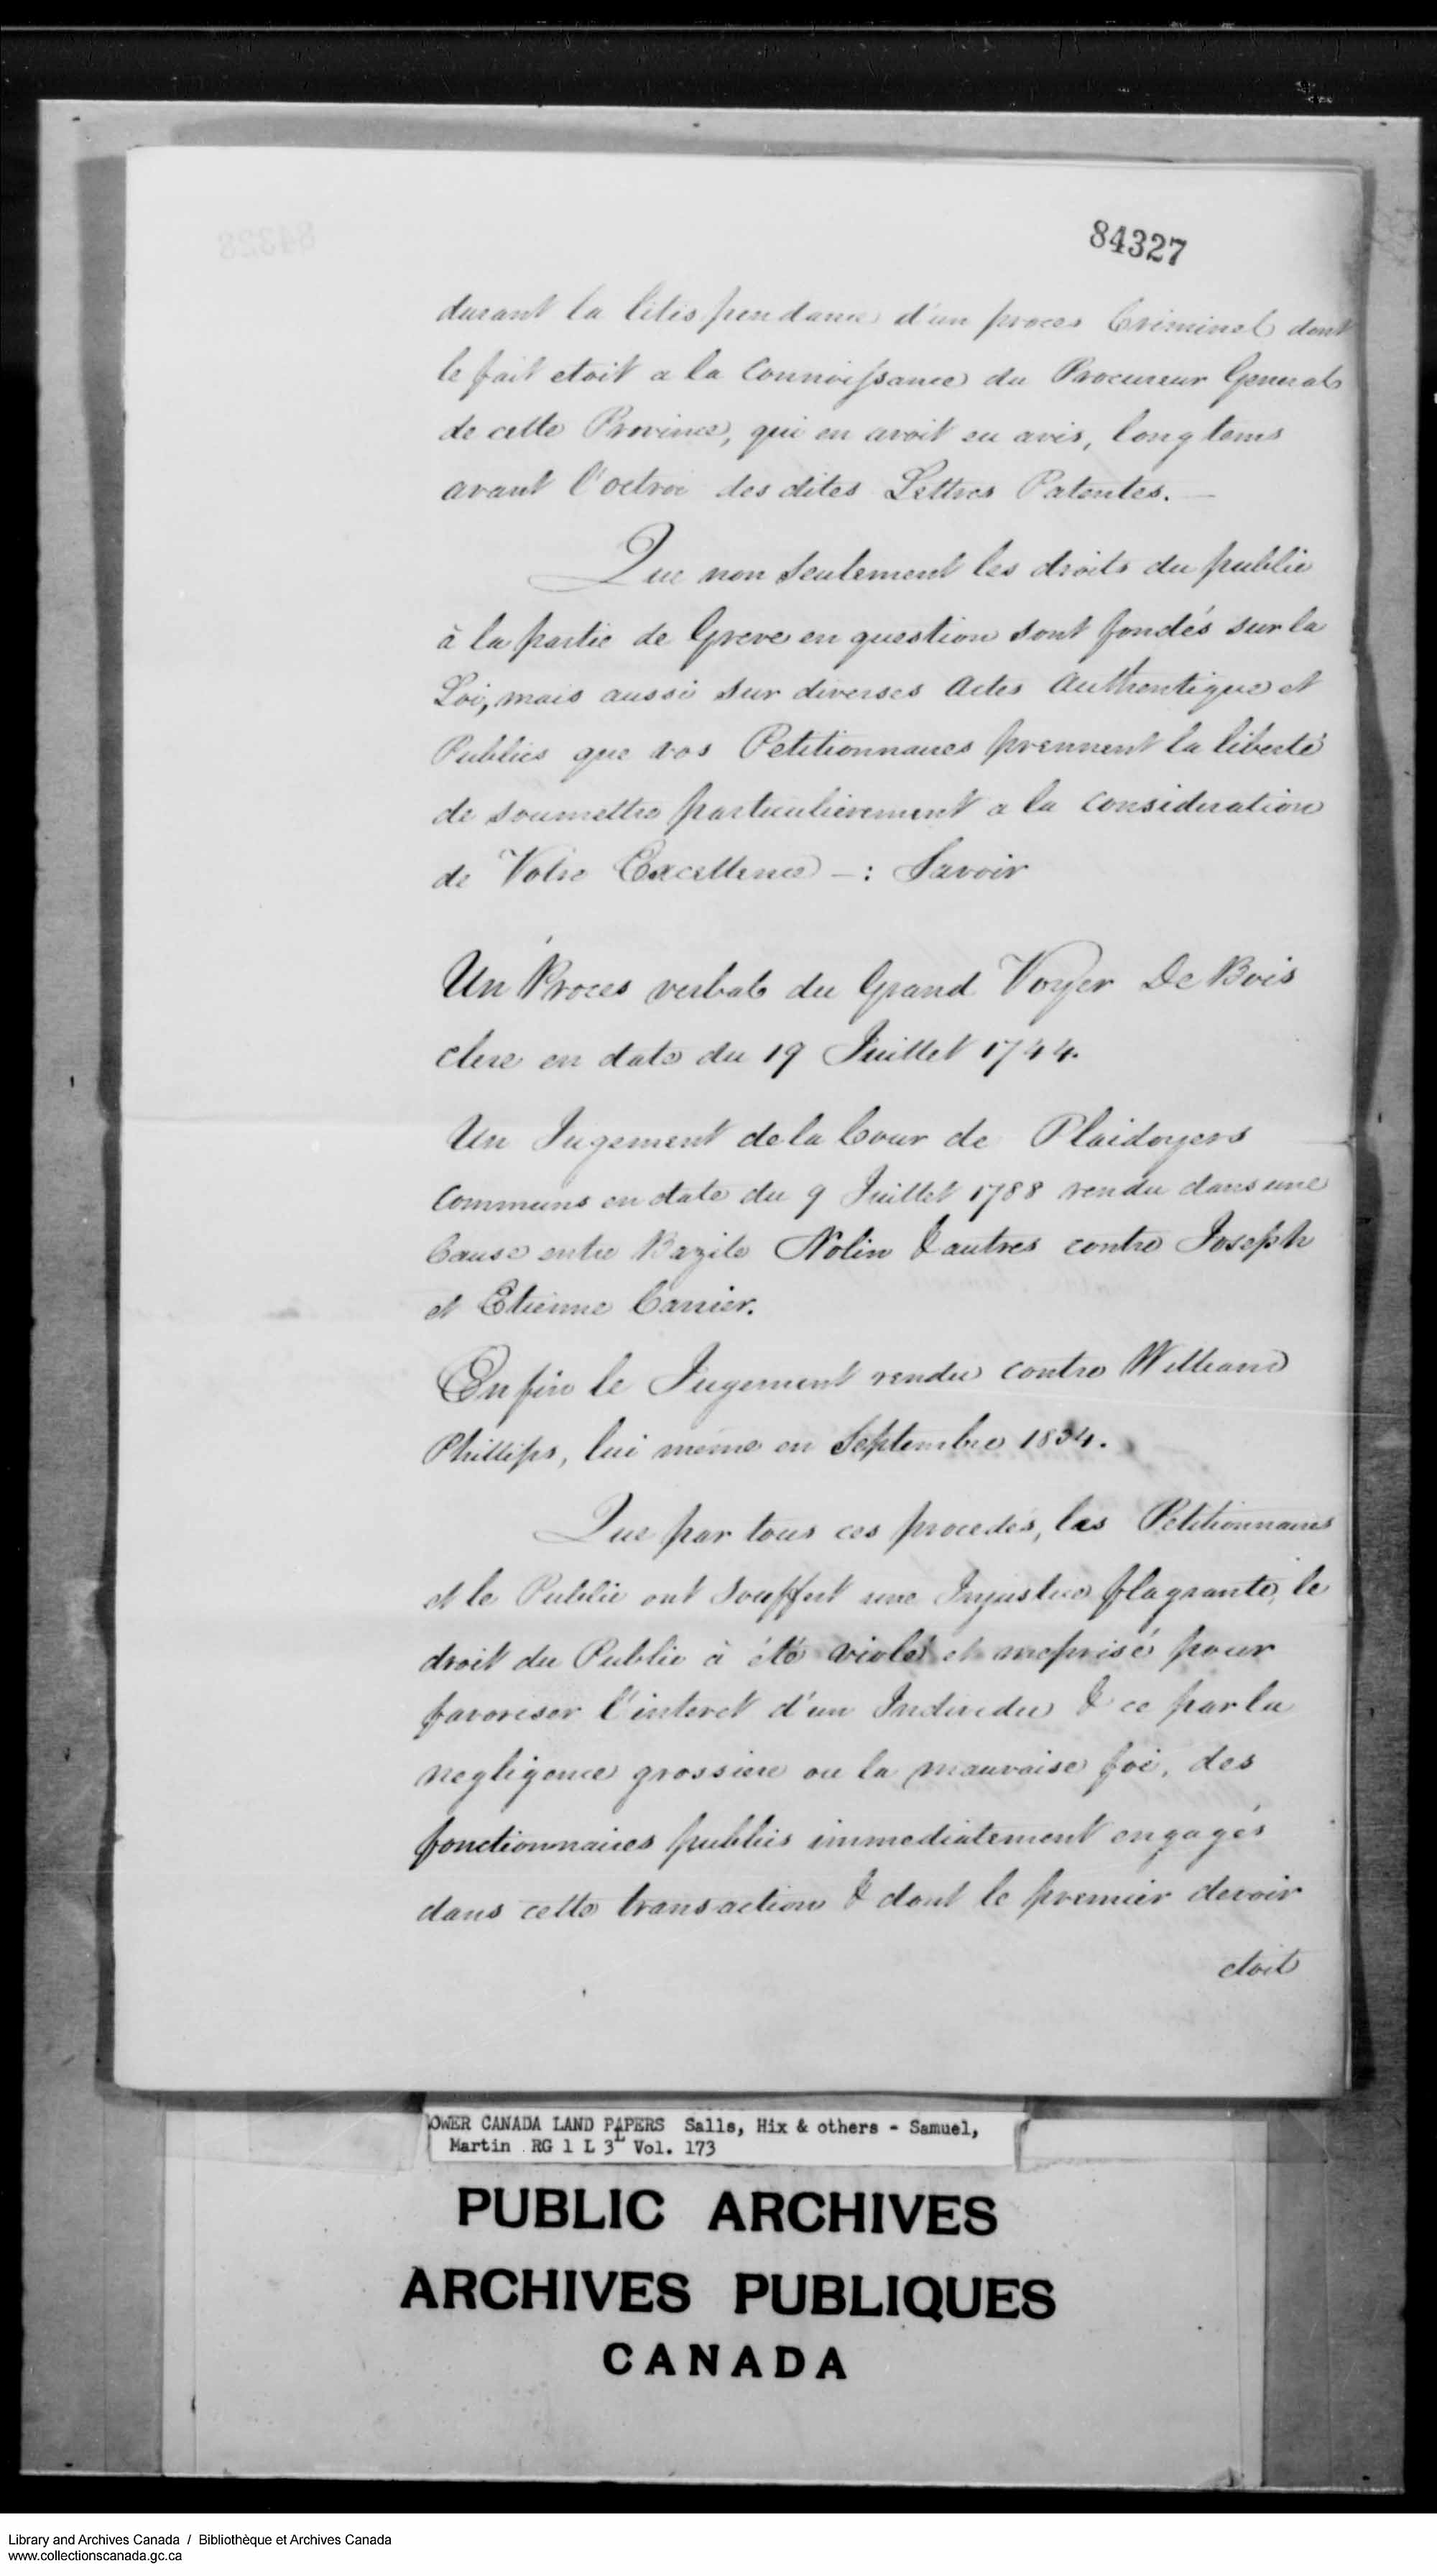 84327
durant la litispendance d'un proces Criminel dont
le fait etoit a la Connoissance du Procureur General
de cette Province, qui en avoit eu avis, long tems
avant l'octroi des dites Lettres Patentes. —
Que non seulement les droits du public
à la partie de Greve en question sont fondés sur la
Loi, mais aussi sur diverses Actes Authentique et
Publics que vos Petitionnaires prennent la liberté
de soumettre particulierement a la consideration
de Votre Excellence —: Savoir
Un Proces verbal du Grand Voyer De Bois
clere en date du 19 Juillet 1744.
Un Jugement de la Cour de Plaidoyers
Communs en date du 9 Juillet 1788 rendu dans une
Cause entre Bazile Nolin & autres contre Joseph
et Etienne Carrier.
Enfin le Jugement rendu contre William
Phillips, lui meme en Septembre 1834.
Que par tous ces procedés, les Petitionnaires
et le Public ont souffert une Injustice flagrante, le
droit du Public à été violé et meprisé pour
favoriser l'interet d'un Individu & ce par la
negligence grossiere ou la mauvaise foi, des
fonctionnaires publics immediatement engagés
dans cette transaction & dont le premier devoir
etoit
OWER CANADA LAND PAPERS Salls, Hix & others - Samuel,
Martin RG 1 L 3L Vol. 173
PUBLIC ARCHIVES
ARCHIVES PUBLIQUES
CANADA
Library and Archives Canada / Bibliothèque et Archives Canada
www.collectionscanada.gc.ca